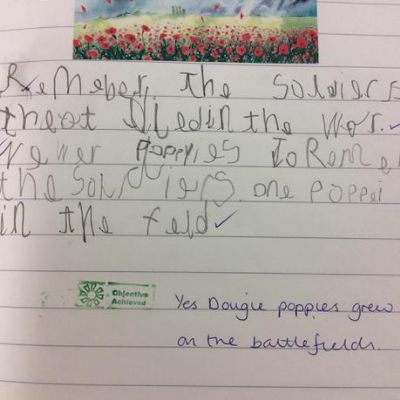 Remeber the Soldiers
theat Died in the wor.
we wer Poppyies To Reme
the Soldiers. one poppei
in the feld
Objective
Achieved
Yes Dougie poppies grew
on the battlefields.